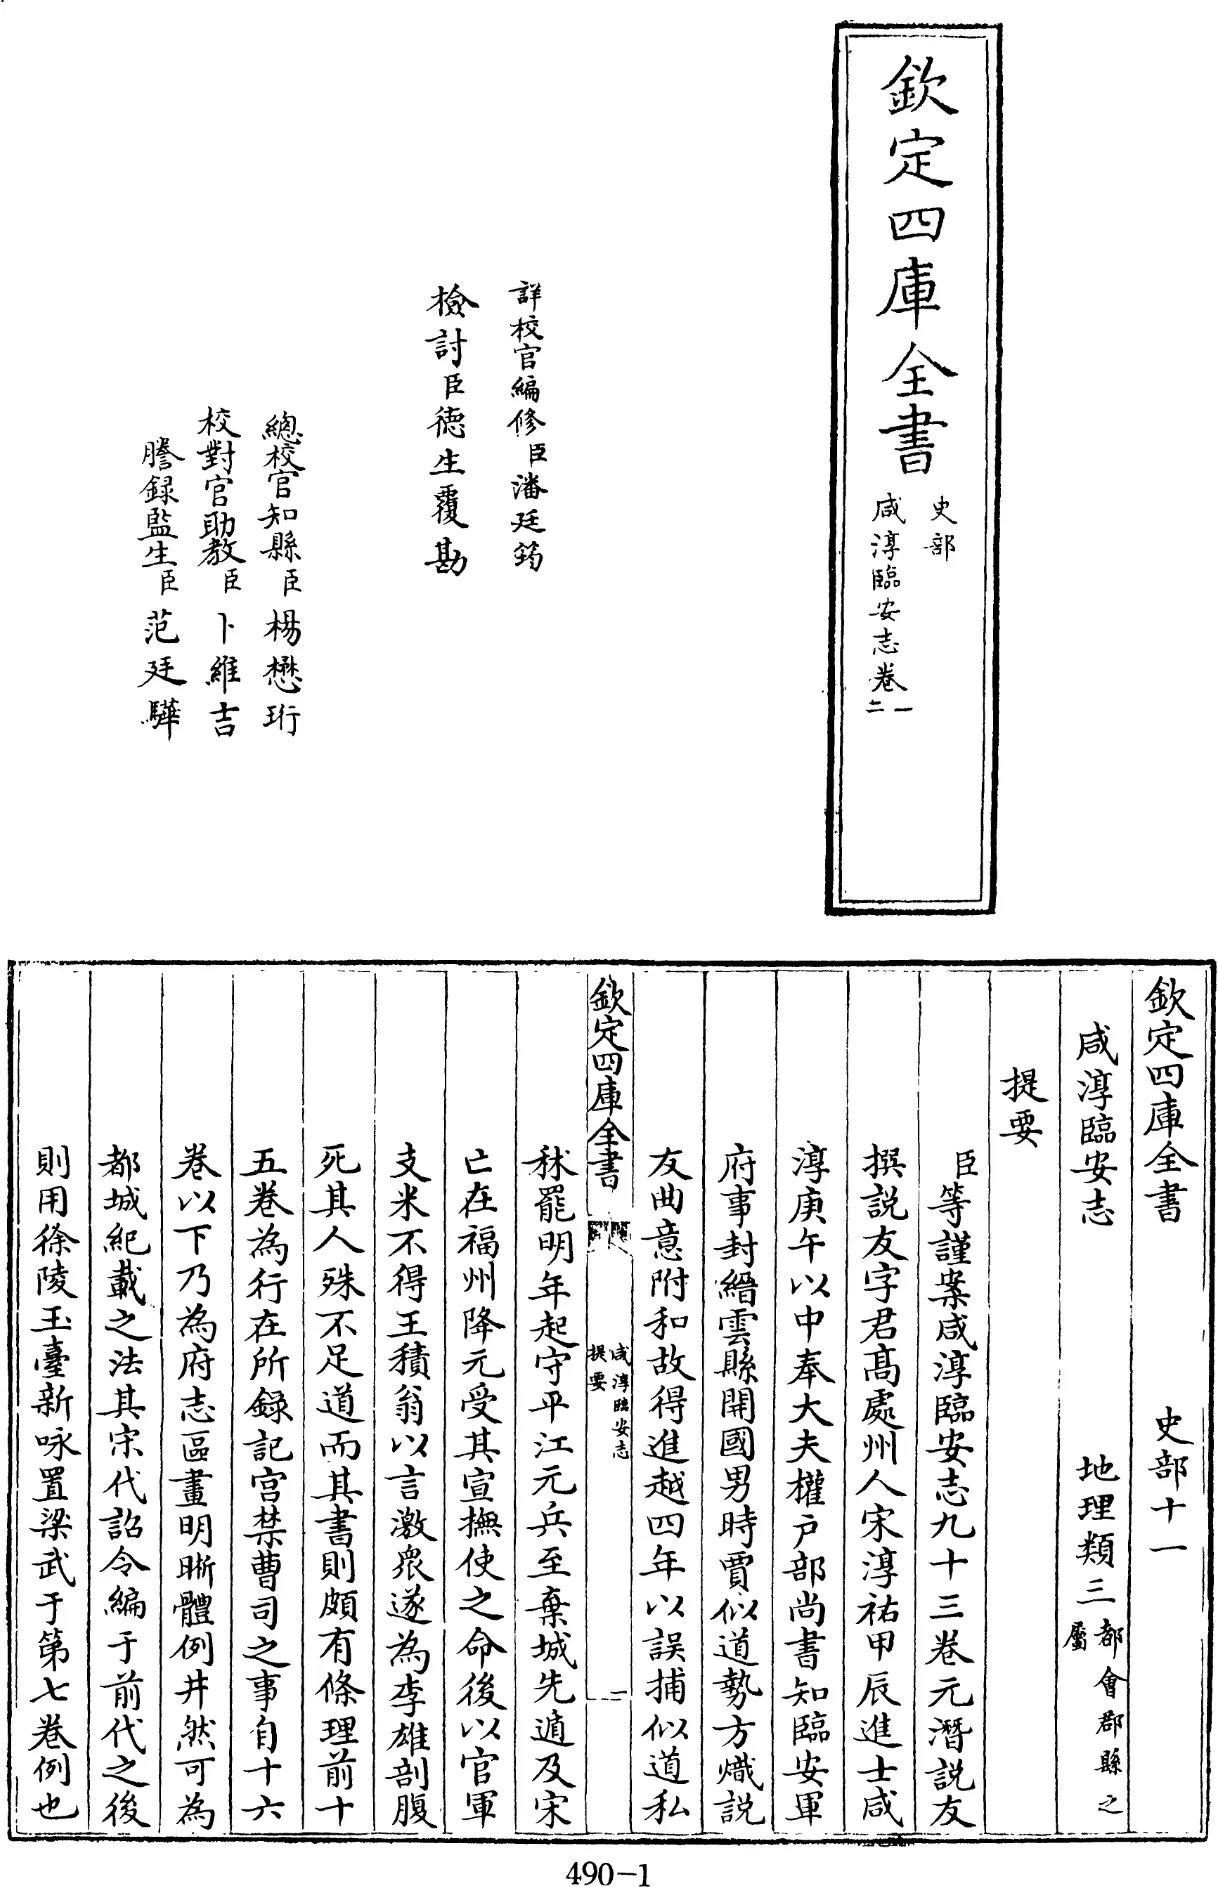 欽定四庫全書
史部
咸淳臨安志卷一
二
詳校官編修臣潘廷筠
檢討臣德生覆勘
總校官知縣臣楊懋珩
校對官助教臣卜維吉
謄録監生臣范廷驊
欽定四庫全書 史部十一
咸淳臨安志 地理類三都會郡縣之
屬
提要
臣等謹案咸淳臨安志九十三卷元潛説友
撰説友字君髙處州人宋淳祐甲辰進士咸
淳庚午以中奉大夫權户部尚書知臨安軍
府事封縉雲縣開國男時賈似道勢方熾説
友曲意附和故得進越四年以誤捕似道私
欽定四庫全書
咸淳臨安志
提要
一
秫罷明年起守平江元兵至棄城先遁及宋
亡在福州降元受其宣撫使之命後以官軍
支米不得王積翁以言激衆遂為李雄剖腹
死其人殊不足道而其書則頗有條理前十
五卷為行在所録記宫禁曹司之事自十六
卷以下乃為府志區畫明晰體例井然可為
都城紀載之法其宋代詔令編于前代之後
則用徐陵玉臺新咏置梁武于第七卷例也
490-1